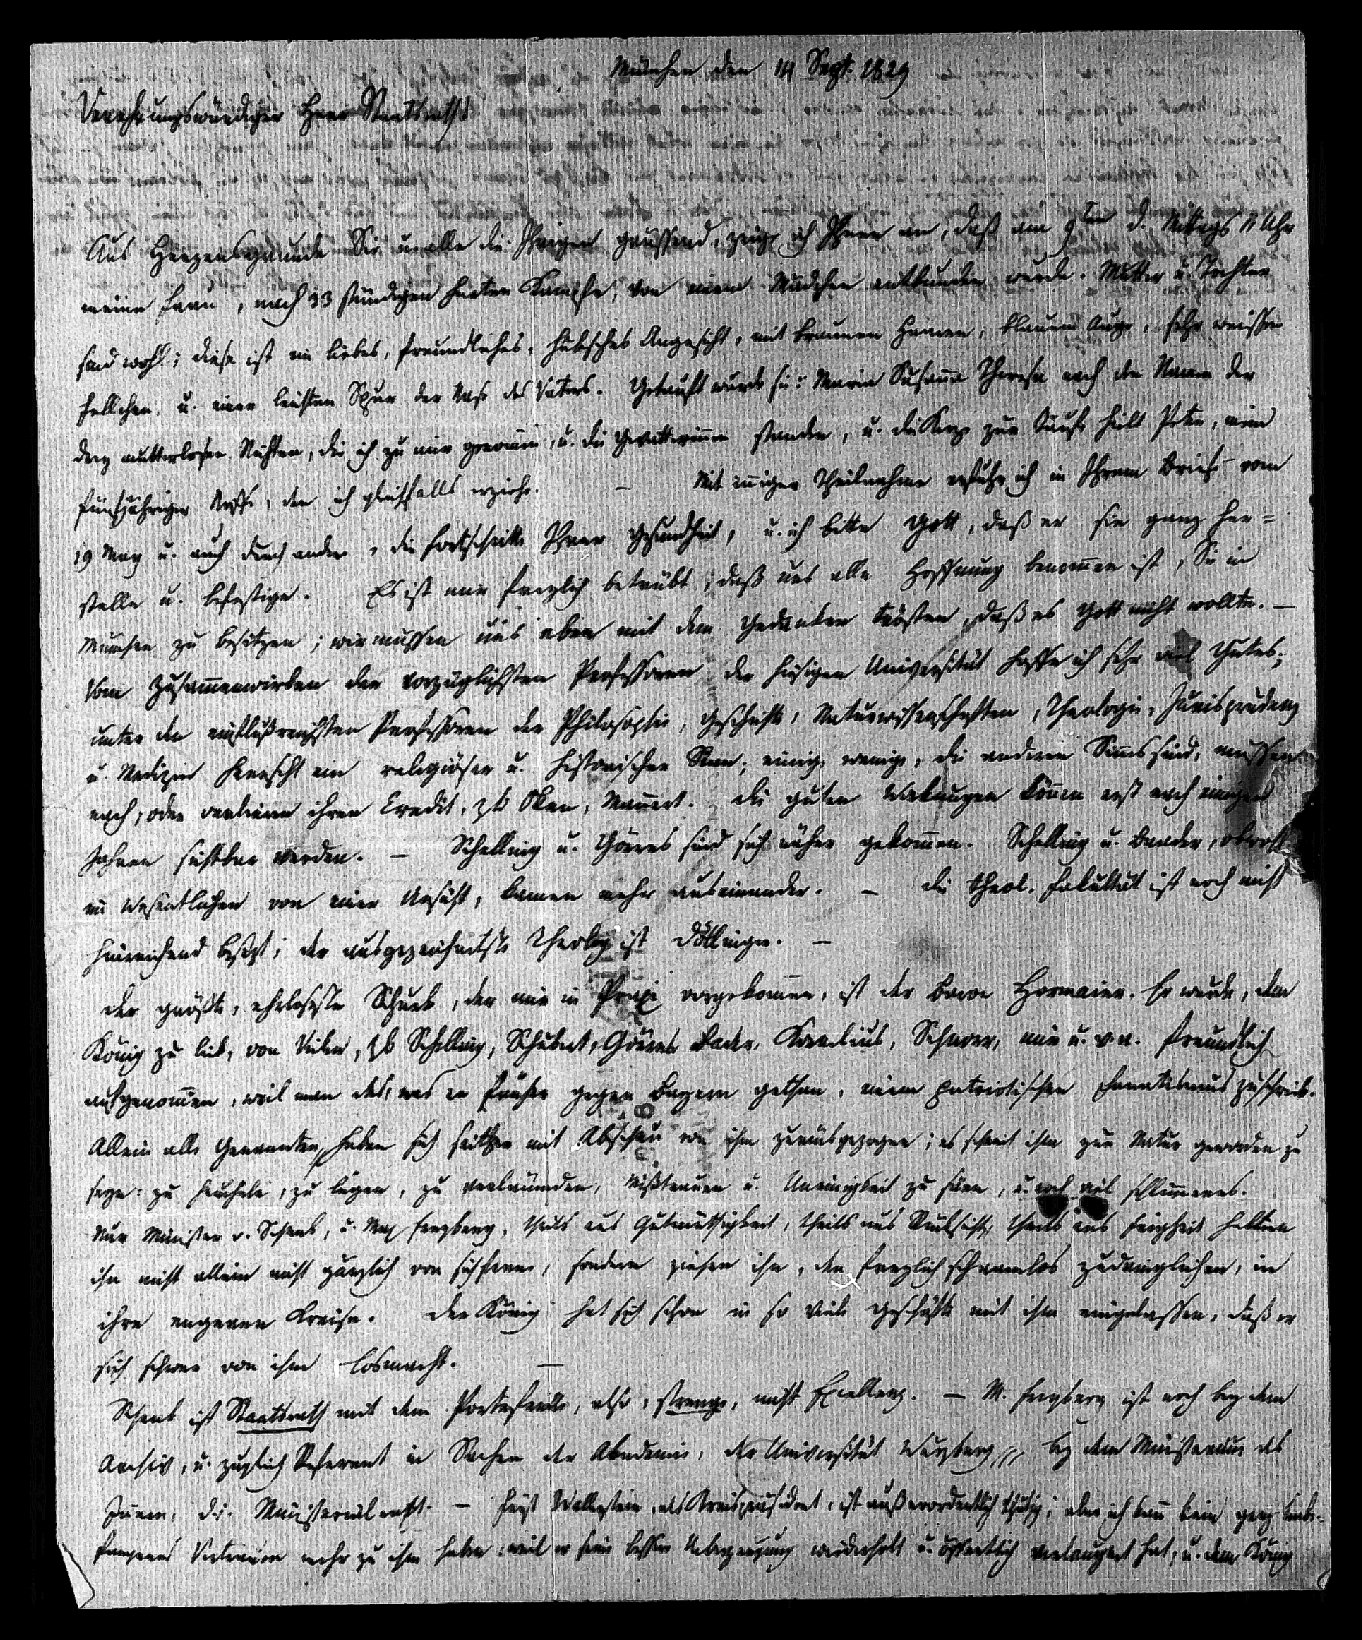 München den 14 Sept. 1829
Verehrungswürdiger Herr Staatsrath!
Aus Herzensgrunde Sie u. alle die Ihrigen grüssend, zeige ich Ihnen an, daß am 9ten d. Mittags 11 Uhr
meine Frau, nach 33 stündigem harten Kampfe, von einem Mädchen entbunden wurde. Mutter u. Tochter
sind wohl; diese ist ein liebes, freundliches, hübsches Angesicht, mit braunen Haaren, blauem Auge, sehr weissem
Fellchen, u. einer leisen Spur der Nase des Vaters. Getauft wurde sie: Maria Susanna Theresa nach den Namen der
drey mutterlosen Nichten, die ich zu mir genom̄en, u. die Gevatterinnen standen, u. die Kerze zur Taufe hielt Peter, mein
fünfjähriger Neffe, den ich gleichfalls erziehe. — Mit inniger Theilnahme erfuhr ich in Ihrem Briefe vom
19 May u. auch durch andere, die Fortschritte Ihrer Gesundheit, u. ich bitte Gott, daß er sie ganz her=
stelle u. befestige. Es ist mir herzlich betrübt, daß uns alle Hoffnung benom̄en ist, Sie in
München zu besitzen; wir müssen uns aber mit dem Gedanken trösten, daß es Gott nicht wollte. —
Vom Zusam̄enwirken der vorzüglichsten Professoren der hiesigen Universität hoffe ich sehr viel Gutes;
unter den einflußreichsten Professoren der Philosophie, Geschichte, Naturwissenschaften, Theologie, Jurisprudenz
u. Medizin herrscht ein religiöser u. historischer Sinn; einige wenige, die anderen Sinnes sind, müssen
nach, oder verlieren ihren Credit, z.b. Oken, Mannert. Die guten Wirkungen können erst nach einigen
Jahren sichtbar werden. — Schelling u. Görres sind sich näher gekom̄en. Schelling u. Baader, obwohl
im Wesentlichen von einer Ansicht, kamen mehr auseinander. — Die theol. Fakultät ist noch nicht
hinreichend besetzt; der ausgezeichnetste Theolog ist Döllinger. —
Der größte, ehrloseste Schurk, der mir in Praxi vorgekommen, ist der Baron Hormaier. Er wurde, dem
König zu lieb, von Vielen, z.b. Schelling, Schubert, Görres Bader, Kornelius, Schnorr, mir u. v. a. freundlich
aufgenom̄en, weil man das, was er früher gegen Bayern gethan, einem patriotischen Fanatismus zuschrieb.
Allein alle Genannten haben sich seither mit Abscheu von ihm zurückgezogen; es scheint ihm zur Natur geworden zu
seyn: zu heucheln, zu lügen, zu verläumden, Mißtrauen u. Uneinigkeit zu säen, u. viel Schlimmeres.
Nur Minister v. Schenk, u. Max Freyberg, theils aus Gutmüthigkeit, theils aus Rücksicht, theils aus Feigheit halten
ihn nicht allein nicht gänzlich von sich ferne, sondern ziehen ihn, den herzlich schamlos zudringlichen, in
ihre engeren Kreise. Der König hat sich schon in so viele Geschäfte mit ihm eingelassen, daß er
sich schwer von ihm losmacht. —
Schenk ist Staatsrath mit dem Portefeuille, also, strenge, nicht Excellenz. — M. Freyberg ist noch bey dem
Archiv, u. zugleich Referent in Sachen der Akademie, der Universität bey dem Ministerium des
Innern, d.i. Ministerialrath. — Fürst Wallerstein, als Kreispräsident, ist außerordentlich thätig; aber ich kann kein ganz
Vertrauen mehr zu ihm haben, weil er seine bessere Ueberzeugung wiederholt u. öffentlich verläugnet hat, u. dem König